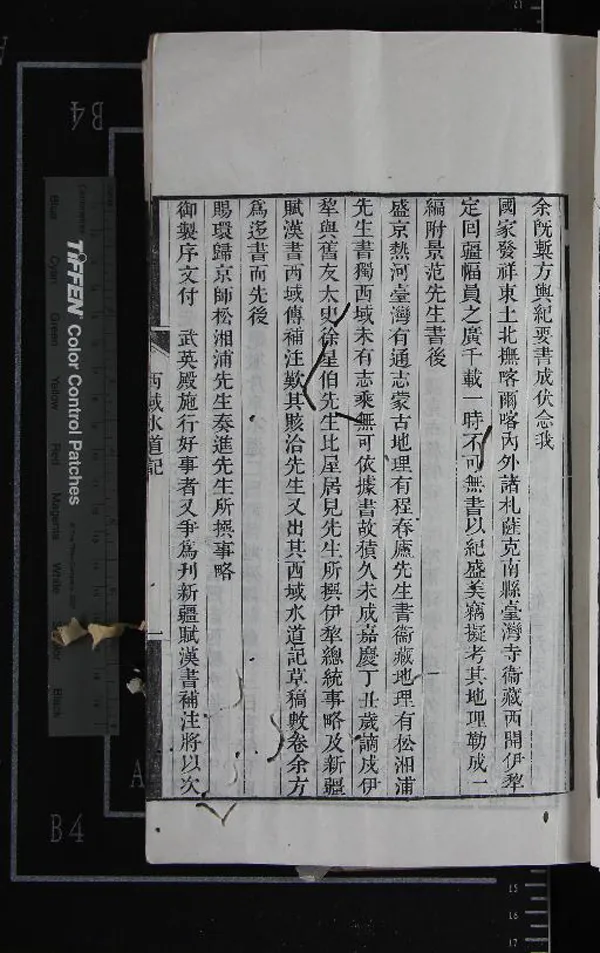 余既槧方輿紀要書成伏念我
國家發祥東土北撫喀爾喀內外諸札薩克南縣臺灣寺衞藏西開伊犂
定回疆幅員之廣千載一時不可無書以紀盛美竊擬考其地理勒成一
編附景范先生書後
盛京熱河臺灣有通志蒙古地理有程春廬先生書衞藏地理有松湘浦
先生書獨西域未有志乘無可依據書故積久未成嘉慶丁丑歲謫戍伊
犂與舊友太史徐星伯先生比屋居見先生所撰伊犂總統事略及新疆
賦漢書西域傳補注歎其賅洽先生又出其西域水道記草稿數卷余方
爲迻書而先後
賜環歸京師松湘浦先生奏進先生所撰事略
御製序文付 武英殿施行好事者又爭爲刊新疆賦漢書補注將以次
西域水道記
一
TIFFEN Color Control Patches
Blue
Cyan
Green
Yellow
Red
Magenta
White
Black
B4
B4
A
15
16
17